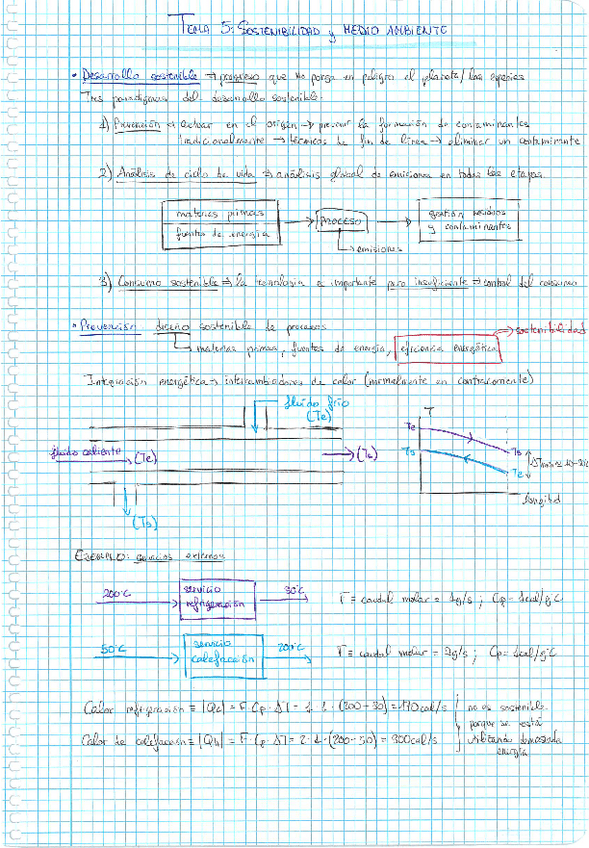 TEMA 5: SOSTENIBILIDAD y MEDIO AMBIENTE
• Desarrollo sostenible → progreso que no ponga en peligro el planeta/las especies
Tres paradigmas del desarrollo sostenible.
1) Prevención → actuar en el origen → prevenir la formación de contaminantes
tradicionalmente → técnicas de fin de línea → eliminar un contaminante
2) Análisis de ciclo de vida → análisis global de emisiones en todas las etapas
materias primas
fuentes de energía
proceso
gestión residuos
y contaminantes
→ emisiones
3) Consumo sostenible → la tecnología es importante pero insuficiente → control del consumo
• Prevención diseño sostenible de procesos
→ sostenibilidad
→ materias primas, fuentes de energía, eficiencia energética
Integración energética → intercambiadores de calor (normalmente en contracorriente)
fluido frío
(Te)
fluido caliente → (Te)
→ (Ts)
(Ts)
T
Te
Ts
Ts
Te
longitud
EJEMPLO: servicios externos
200°C
servicio
refrigeración
30°C
F ≡ caudal molar = 1g/s ; Cp = 1cal/g°C
50°C
servicio
calefacción
200°C
F ≡ caudal molar = 2g/s ; Cp = 1cal/g°C
Calor refrigeración ≡ |Qc| = F·Cp·ΔT = 1·1·(200-30) = 170cal/s
Calor de calefacción ≡ |Qh| = F·Cp·ΔT = 2·1·(200-50) = 300cal/s
no es sostenible
porque se está
utilizando demasiada
energía